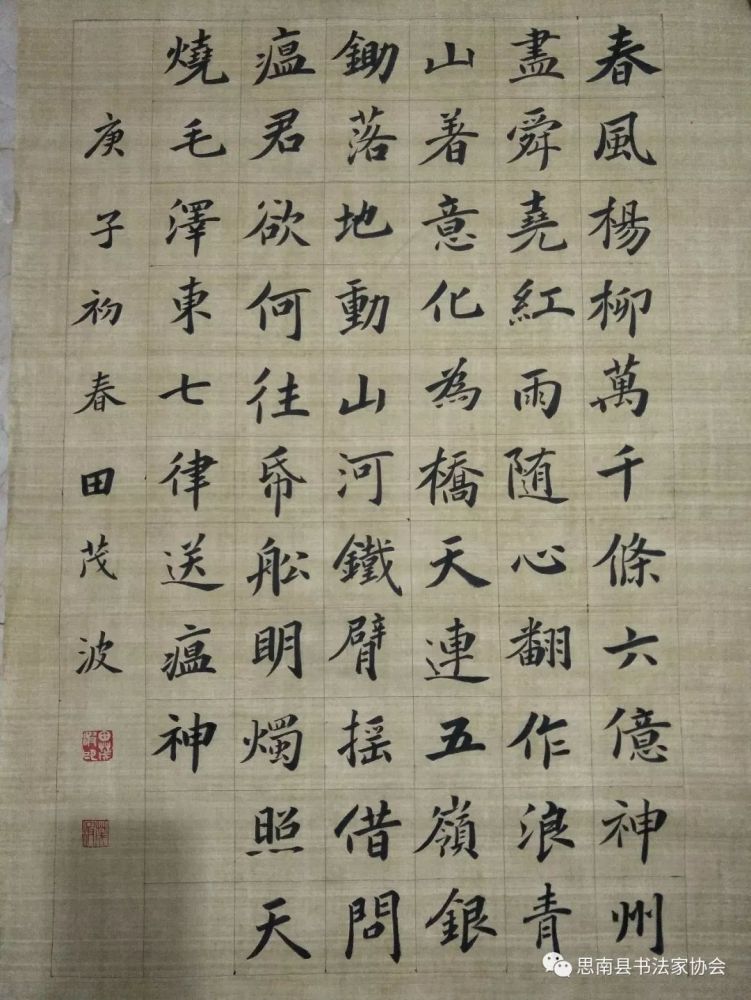 春風楊柳萬千條六億神州
盡舜堯紅雨随心翻作浪青
山著意化為橋天連五嶺銀
鋤落地動山河鐵臂摇借問
瘟君欲何往帋舩明燭照天
燒毛澤東七律送瘟神
庚子初春田茂波
思南县书法家协会